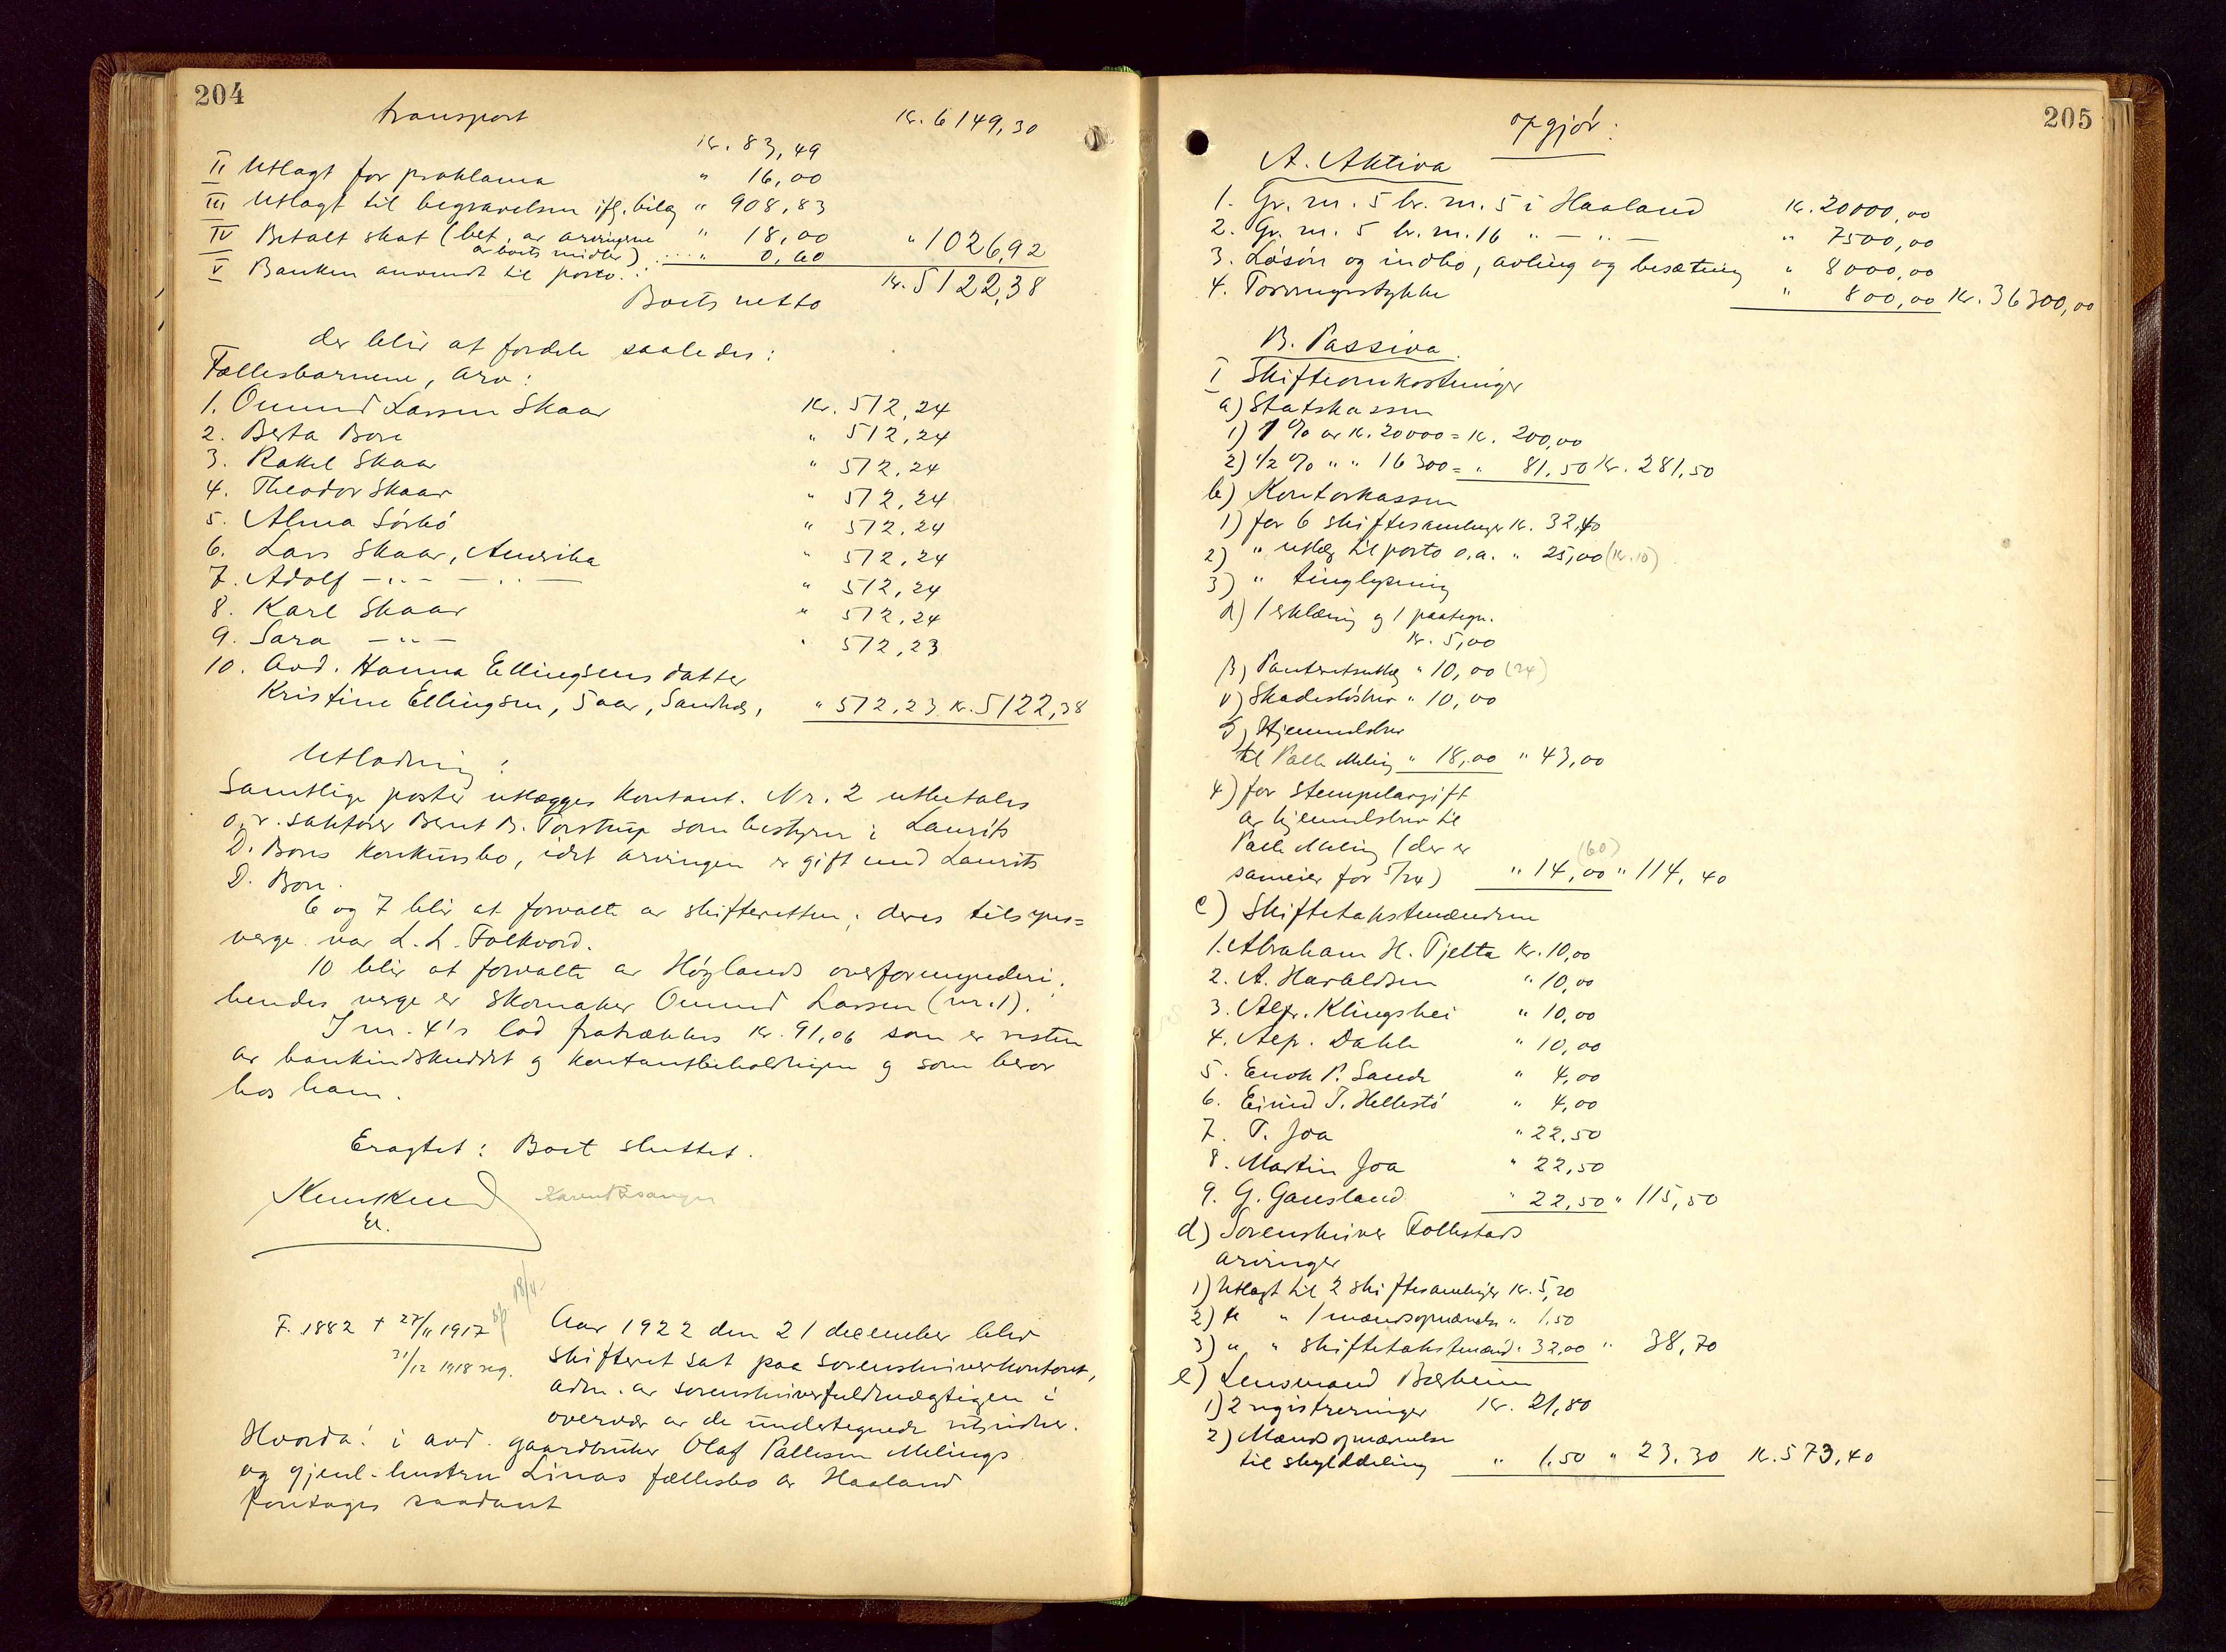 204
transport kr. 6149,30
kr. 83,49
II Utlagt for proklama " 16,00
III Utlagt til begravelsen ifg. bilag " 908,83
IV Betalt skat (bet. av arvingene " 18,00 " 1026,92
av boets midler)
V Banken anvendt til porto " 0,60
Boets netto kr. 5122,38
der blir at fordele saaledes:
Fællesbarnene, arv:
1. Omund Larsen Skaar kr. 512,24
2. Berta Bore " 512,24
3. Rakel Skaar " 512,24
4. Theodor Skaar " 512,24
5. Alma Sörbö " 512,24
6. Lars Skaar, Amerika " 512,24
7. Adolf —"— —"— " 512,24
8. Karl Skaar " 512,24
9. Sara —"— " 512,23
10. Avd. Hanna Ellingsens datter
Kristine Ellingsen, 5 aar, Sandnes, " 512,23 kr. 5122,38
Utlodning:
Samtlige poster utlægges kontant. Nr. 2 utbetales
o.r. sakfører Bernt B. Torstrup som bestyrer i Laurits
D. Bores konkursbo, idet arvingen er gift med Laurits
D. Bore.
6 og 7 blir at forvalte av skifteretten; deres tilsyns=
verge var L. L. Folkvord.
10 blir at forvalte av Høylands overformynderi;
hendes verge er skomaker Omund Larsen (nr. 1).
I nr. 4's lod fratrækkes kr. 91,06 som er resten
av bankindskuddet og kontantbeholdningen og som beror
hos ham.
Eragtet: Boet sluttet.
F. 1882 + 27/11 1917
31/12 1918 reg.
18/4
Aar 1922 den 21 december blev
skifteret sat paa sorenskriverkontoret,
adm. av sorenskriverfuldmægtigen i
overvær av de undertegnede vidner.
Hvorda: i avd. gaardbruker Olaf Pallesen Melings
og gjenl. hustru Linas fællesbo av Haaland
foretages saadant
205
opgjör:
A. Aktiva
1. Gr. nr. 5 br. nr. 5 i Haaland kr. 20000,00
2. Gr. nr. 5 br. nr. 16 " —"— " 7500,00
3. Løsøre og indbo, avling og besætning " 8000,00
4. Torvmyrstykke " 800,00 kr. 36300,00
B. Passiva.
I Skifteomkostninger
a) Statskassen
1) 1 % av kr. 20000 = kr. 200,00
2) 1/2 % " " 16300 = " 81,50 kr. 281,50
b) Kontorkassen
1) for 6 skiftesamlinger kr. 32,40
2) " utlæg til porto o.a. " 25,00 (kr. 10)
3) " tinglysning
α) 1 erklæring og 1 paategn.
kr. 5,00
β) Panteretsutlæg " 10,00 (24)
γ) Skadesløsbrev " 10,00
δ) Hjemmelsbrev
til Palle Meling " 18,00 " 43,00
4) for stempelavgift
av hjemmelsbrev til
Palle Meling (der er
sameier for 5/24) " 14,00 (60) " 114,40
c) Skiftetakstmændene
1. Abraham H. Tjelta kr. 10,00
2. A. Haraldsen " 10,00
3. Asgr. Klingshei " 10,00
4. Asp. Dahle " 10,00
5. Enok P. Sande " 4,00
6. Eivind T. Hellestö " 4,00
7. T. Joa " 22,50
8. Martin Joa " 22,50
9. G. Gausland " 22,50 " 115,50
d) Sorenskriver Follestads
arvinger
1) Utlagt til 2 skiftesamlinger kr. 5,20
2) " " 1 mændsopnævnelse " 1,50
3) " " skiftetakstmænd " 32,00 " 38,70
e) Lensmand Bærheim
1) 2 registreringer kr. 21,80
2) Mændsopnævnelse
til skylddeling " 1,50 " 23,30 kr. 573,40